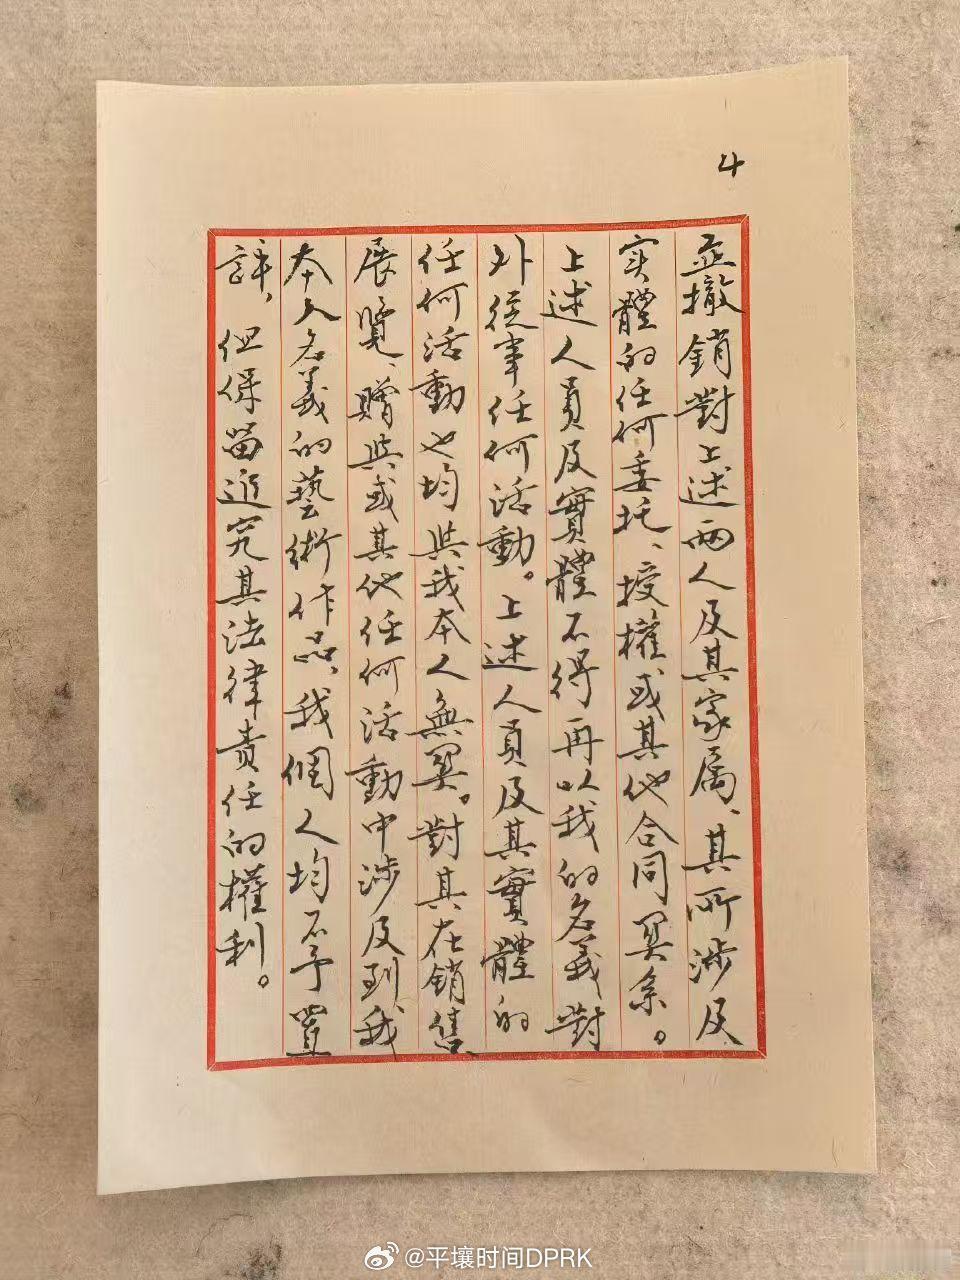 4
並撤銷對上述兩人及其家属、其所涉及
实體的任何委托、授權或其他合同関系。
上述人員及實體不得再以我的名義對
外從事任何活動。上述人員及其實體的
任何活動也均與我本人無関。對其在銷售、
展覽、贈與或其他任何活動中涉及到我
本人名義的藝術作品，我個人均不予置
評，但保留追究其法律責任的權利。
@平壤时间DPRK